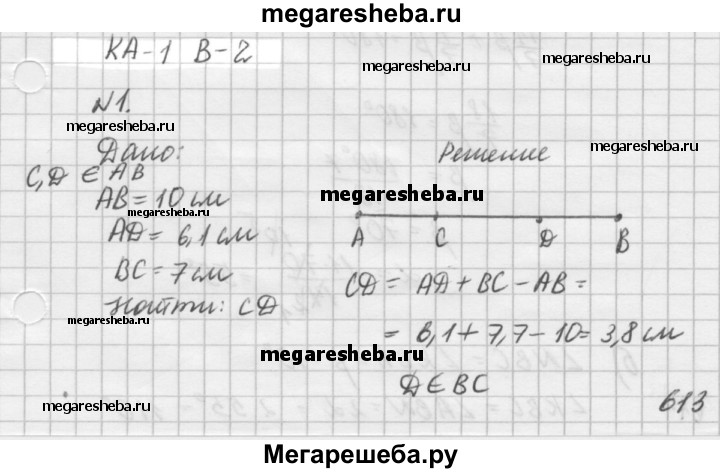 megaresheba.ru
КА-1 В-2
megaresheba.ru
megaresheba.ru
N1.
megaresheba.ru
Дано:
Решение
megaresheba.ru
C,D ∈ AB
AB = 10 см
megaresheba.ru
megaresheba.ru
AD = 6,1 см
A C D B
BC = 7 см
CD = AD + BC - AB =
Найти: CD
megaresheba.ru
= 6,1 + 7,7 - 10 = 3,8 см
megaresheba.ru
megaresheba.ru
D ∈ BC
megaresheba.ru
613
Мегарешеба.ру